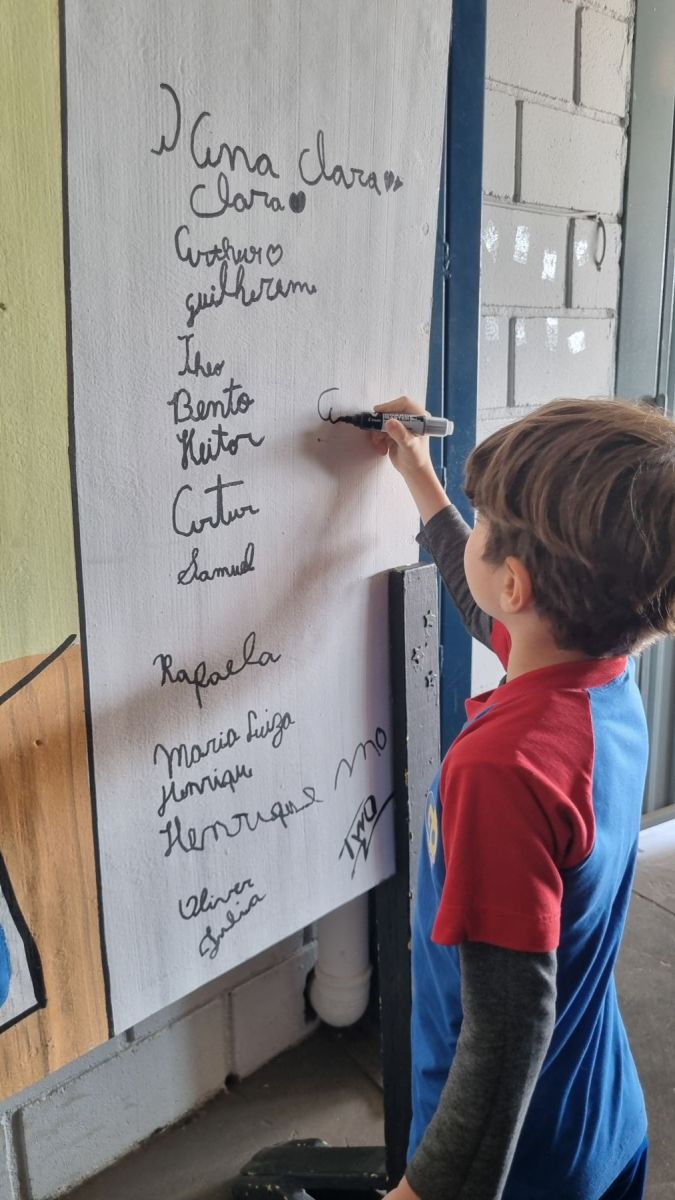 Ana Clara
Clara
Arthur
guilherme
Theo
Bento
Heitor
Artur
Samuel
Rafaela
Maria Luiza
Henrique
Henrique
Oliver
Julia